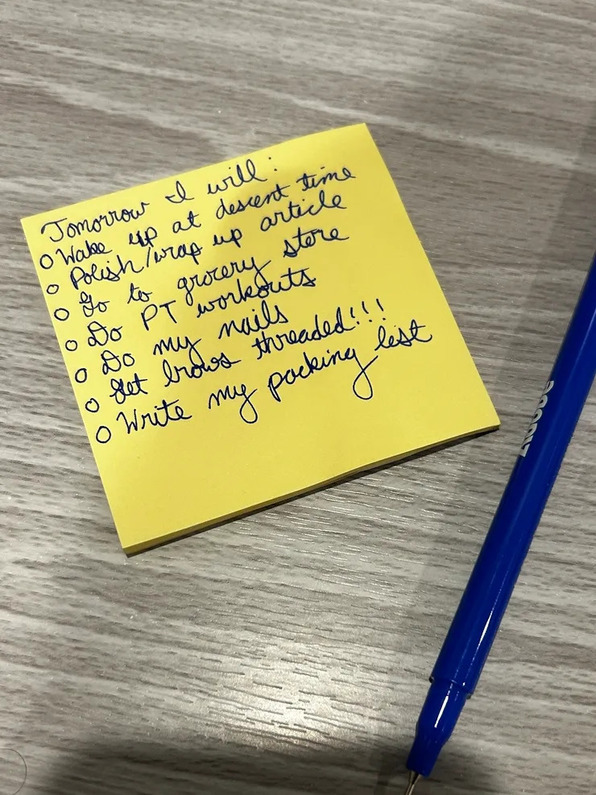 Tomorrow I will:
Wake up at descent time
Polish/wrap up article
Go to grocery store
Do PT workouts
Do my nails
Get brows threaded!!!
Write my packing list